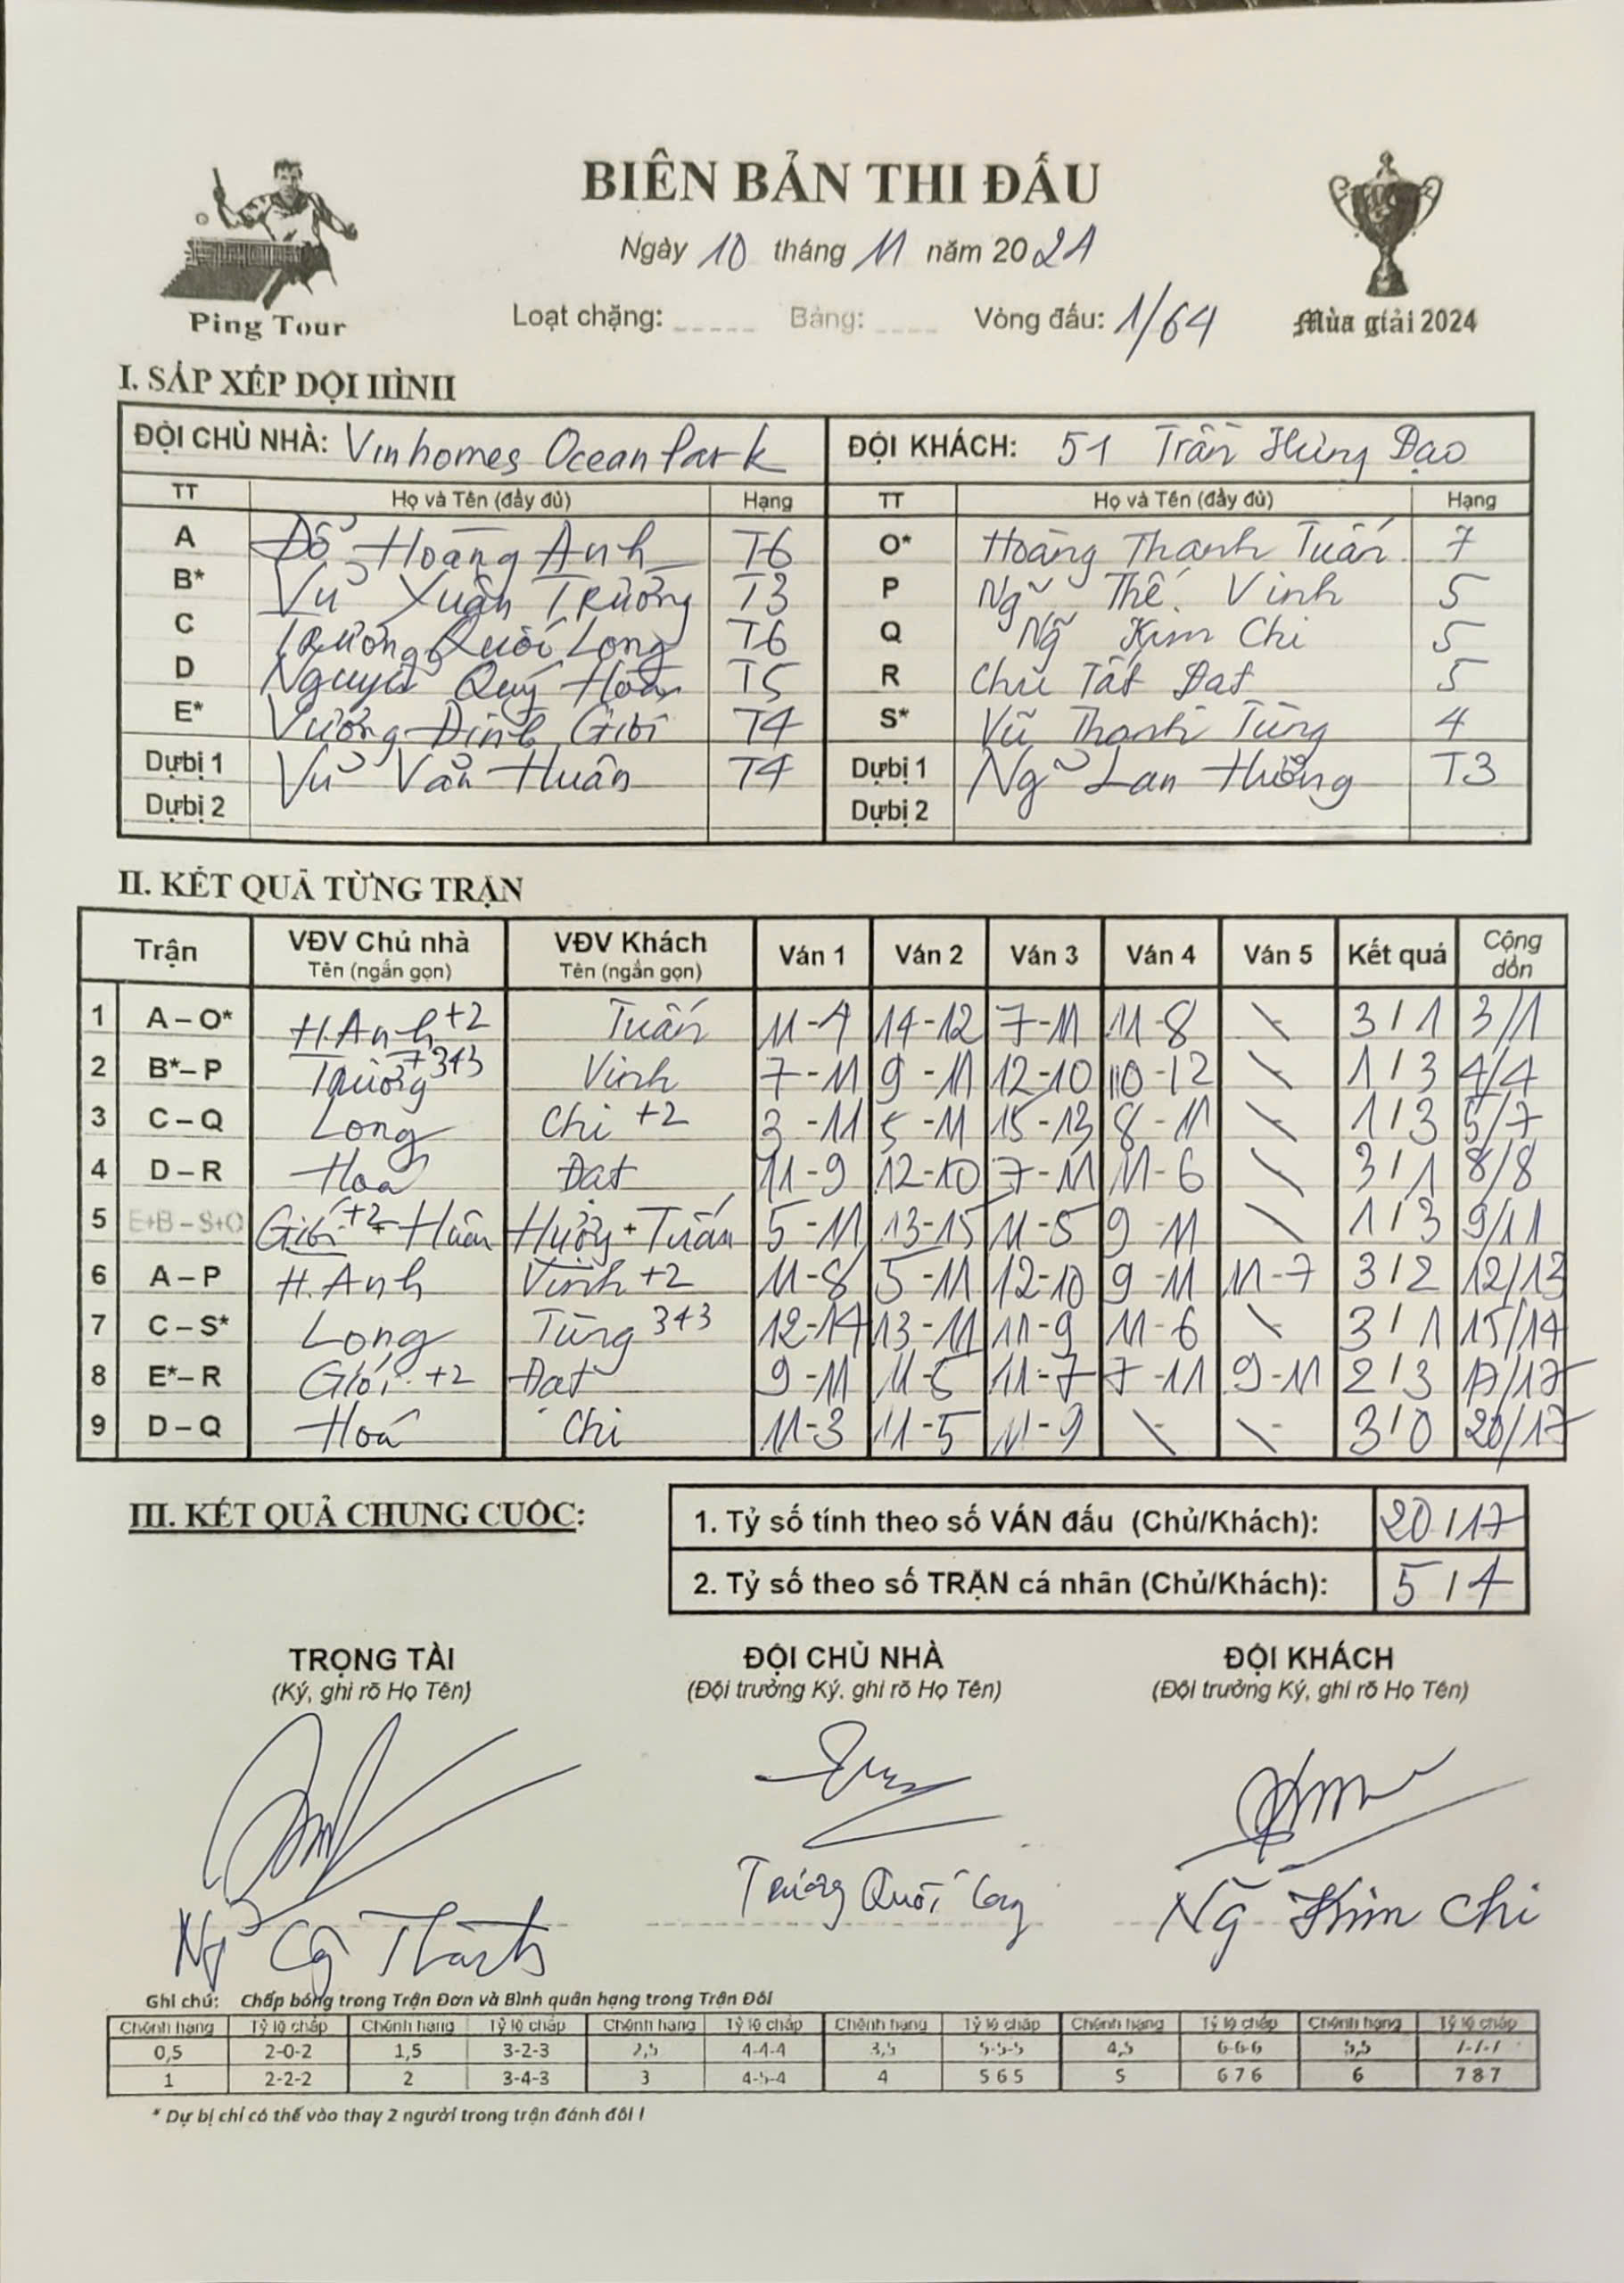 BIÊN BẢN THI ĐẤU
Ngày 10 tháng 11 năm 2024
Loạt chặng: Bảng: Vòng đấu: 1/64
Ping Tour
Mùa giải 2024
I. SẮP XẾP ĐỘI HÌNH
ĐỘI CHỦ NHÀ: Vinhomes Ocean Park ĐỘI KHÁCH: 51 Trần Hưng Đạo
TT Họ và Tên (đầy đủ) Hạng TT Họ và Tên (đầy đủ) Hạng
A Đỗ Hoàng Anh T6 O* Hoàng Thanh Tuấn 7
B* Vũ Xuân Trường T3 P Ng~ Thế Vinh 5
C Trương Quốc Long T6 Q Ng~ Kim Chi 5
D Nguyễn Quý Hoá T5 R Chu Tất Đạt 5
E* Vương Đình Giỏi T4 S* Vũ Thanh Tùng 4
Dự bị 1 Vũ Văn Huân T4 Dự bị 1 Ng~ Lan Hường T3
Dự bị 2 Dự bị 2
II. KẾT QUẢ TỪNG TRẬN
Trận VĐV Chủ nhà VĐV Khách Ván 1 Ván 2 Ván 3 Ván 4 Ván 5 Kết quả Cộng dồn
Tên (ngắn gọn) Tên (ngắn gọn)
1 A – O* H.Anh +2 Tuấn 11-4 14-12 7-11 11-8 \ 3/1 3/1
2 B* – P Trường +343 Vinh 7-11 9-11 12-10 10-12 \ 1/3 4/4
3 C – Q Long Chi +2 3-11 5-11 15-13 8-11 \ 1/3 5/7
4 D – R Hoá Đạt 11-9 12-10 7-11 11-6 \ 3/1 8/8
5 E+B – S+O Giỏi +2 + Huân Hường + Tuấn 5-11 13-15 11-5 9-11 \ 1/3 9/11
6 A – P H.Anh Vinh +2 11-8 5-11 12-10 9-11 11-7 3/2 12/13
7 C – S* Long Tùng 343 12-14 13-11 11-9 11-6 \ 3/1 15/14
8 E* – R Giỏi +2 Đạt 9-11 11-5 11-7 7-11 9-11 2/3 17/17
9 D – Q Hoá Chi 11-3 11-5 11-9 \ \ 3/0 20/17
III. KẾT QUẢ CHUNG CUỘC:
1. Tỷ số tính theo số VÁN đấu (Chủ/Khách): 20/17
2. Tỷ số theo số TRẬN cá nhân (Chủ/Khách): 5/4
TRỌNG TÀI ĐỘI CHỦ NHÀ ĐỘI KHÁCH
(Ký, ghi rõ Họ Tên) (Đội trưởng Ký, ghi rõ Họ Tên) (Đội trưởng Ký, ghi rõ Họ Tên)
Trương Quốc Long Ng~ Kim Chi
Ghi chú: Chấp bóng trong Trận Đơn và Bình quân hạng trong Trận Đôi
Chênh hạng Tỷ lệ chấp Chênh hạng Tỷ lệ chấp Chênh hạng Tỷ lệ chấp Chênh hạng Tỷ lệ chấp Chênh hạng Tỷ lệ chấp Chênh hạng Tỷ lệ chấp
0,5 2-0-2 1,5 3-2-3 2,5 4-4-4 3,5 5-5-5 4,5 6-6-6 5,5 7-7-7
1 2-2-2 2 3-4-3 3 4-5-4 4 5 6 5 5 6 7 6 6 7 8 7
* Dự bị chỉ có thể vào thay 2 người trong trận đánh đôi !